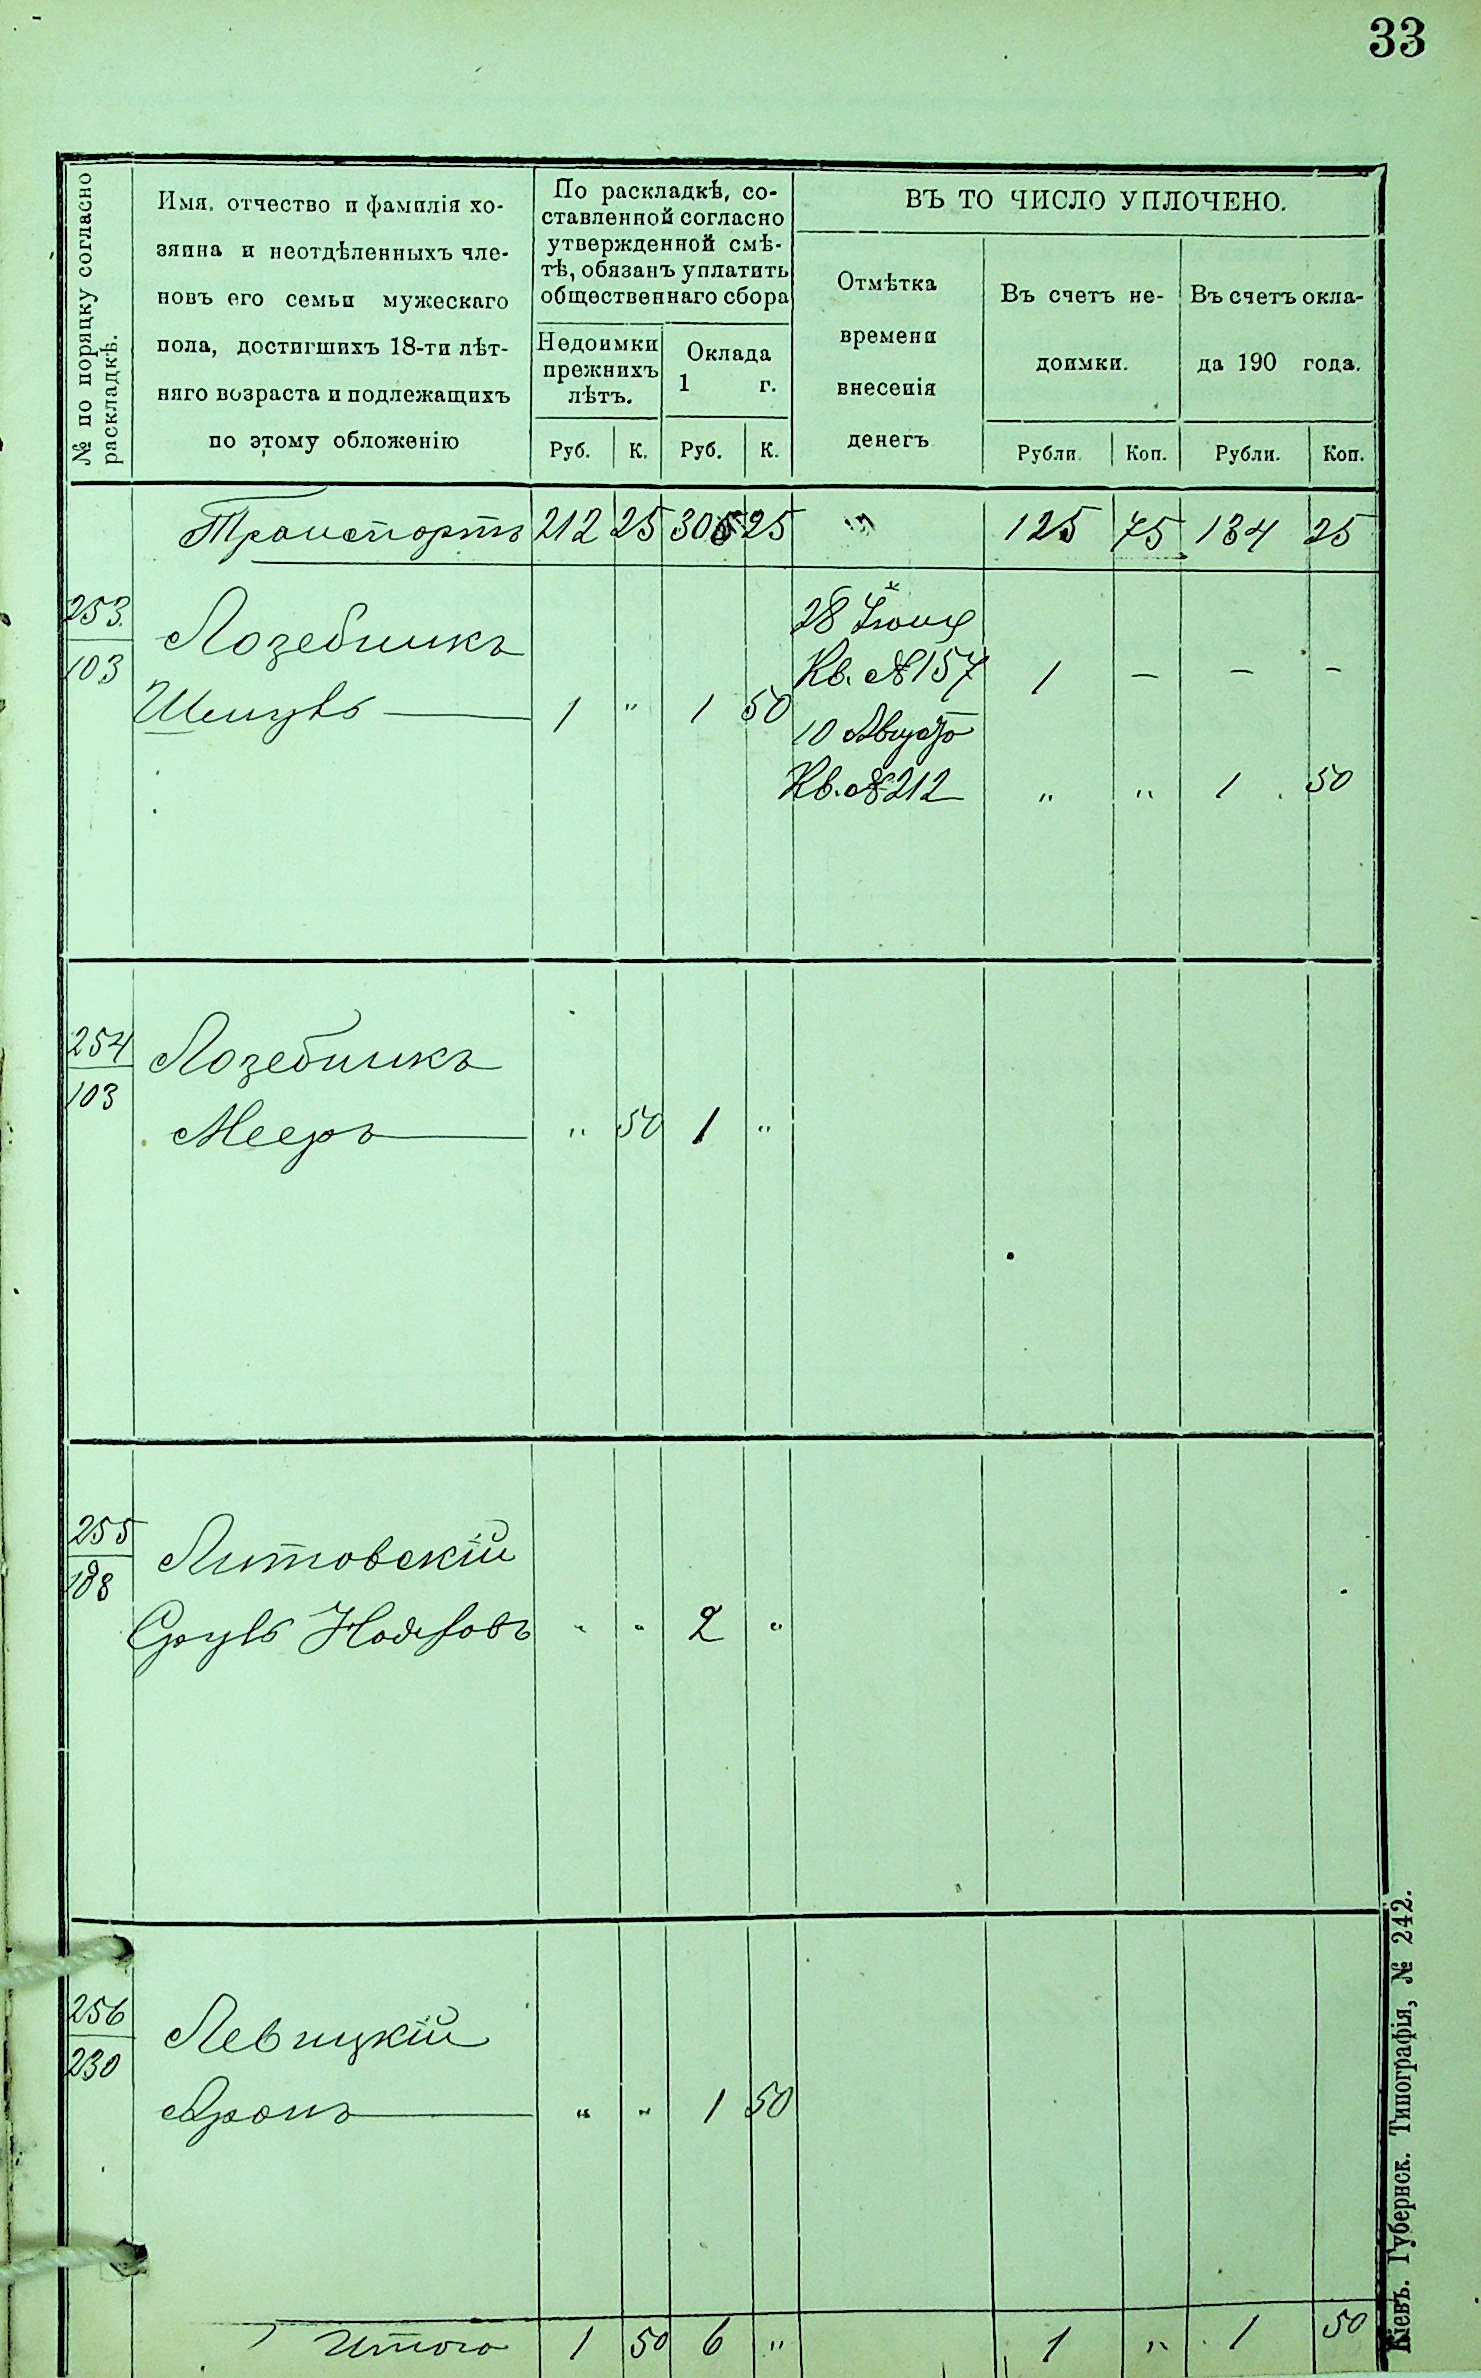 33
№ по порядку согласно раскладкѣ.
Имя, отчество и фамилія хо-
зяина и неотдѣленныхъ чле-
новъ его семьи мужескаго
пола, достигшихъ 18-ти лѣт-
няго возраста и подлежащихъ
по этому обложенію
По раскладкѣ, со-
ставленной согласно
утвержденной смѣ-
тѣ, обязанъ уплатить
общественнаго сбора
Недоимки
прежнихъ
лѣтъ.
Оклада
1 г.
Руб. К. Руб. К.
ВЪ ТО ЧИСЛО УПЛОЧЕНО.
Отмѣтка
времени
внесенія
денегъ
Въ счетъ не-
доимки.
Въ счетъ окла-
да 190 года.
Рубли. Коп. Рубли. Коп.
Транспортъ 212 25 306 25 " 125 75 134 25
253
103
Лозебникъ
Шмуль 1 " 1 50
28 Іюня
Кв. №157 1 — — —
10 Августа
Кв. №212 " " 1 50
254
103
Лозебникъ
Мееръ " 50 1 "
255
188
Литовскій
Сруль " " 2 "
256
230
Левицкій
Аронъ " " 1 50
Итого 1 50 6 " 1 " 1 50
Кіевъ. Губернск. Типографія, № 242.